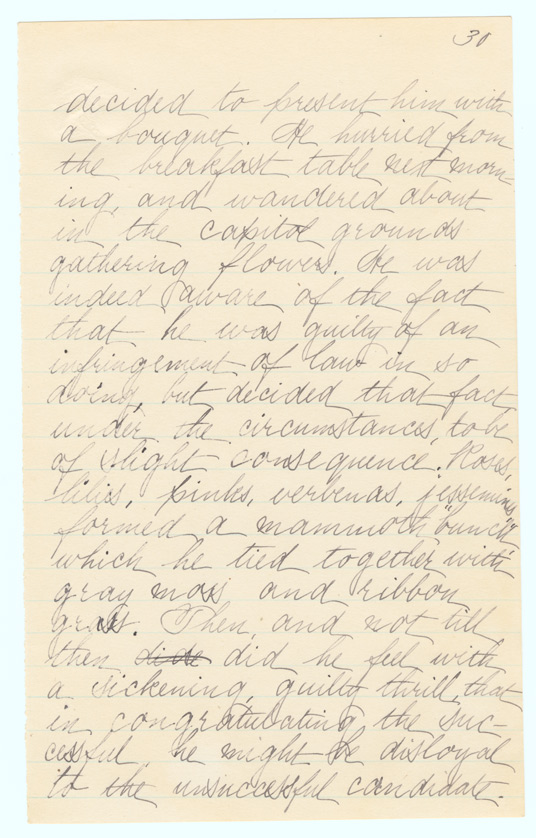 30
decided to present him with
a bouquet. He hurried from
the breakfast table next morn
ing, and wandered about
in the capitol grounds
gathering flowers. He was
indeed aware of the fact
that he was guilty of an
infringement of law in so
doing, but decided that fact
under the circumstances, to be
of slight consequence. Roses,
lilies, pinks, verbenas, jessemines
formed a mammoth "bunch"
which he tied together with
gray moss and ribbon
grass. Then, and not till
then did he feel with
a sickening, guilty thrill, that
in congratulating the suc-
cessful he might be disloyal
to the unsuccessful candidate.